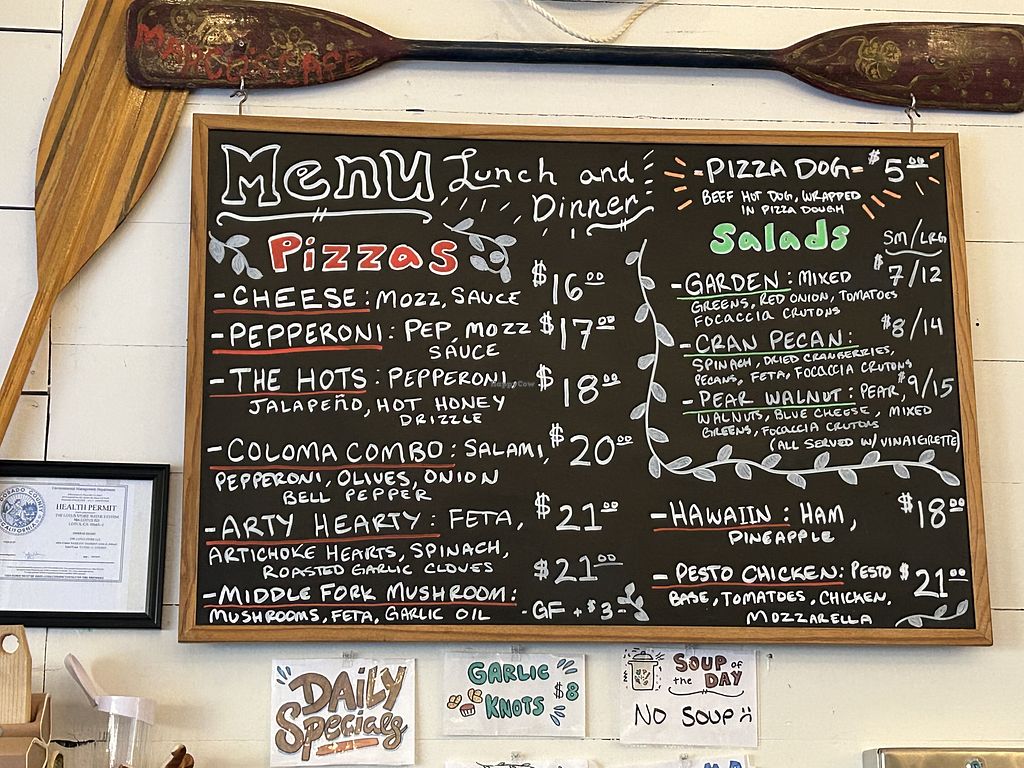 MARCO'S CAFE
Menu Lunch and
Dinner
Pizzas
-CHEESE: MOZZ, SAUCE $16.00
-PEPPERONI: PEP, MOZZ $17.00
SAUCE
-THE HOTS: PEPPERONI, $18.00
JALAPEÑO, HOT HONEY
DRIZZLE
-COLOMA COMBO: SALAMI, $20.00
PEPPERONI, OLIVES, ONION
BELL PEPPER
-ARTY HEARTY: FETA, $21.00
ARTICHOKE HEARTS, SPINACH,
ROASTED GARLIC CLOVES
$21.00
-MIDDLE FORK MUSHROOM:
MUSHROOMS, FETA, GARLIC OIL
-GF +$3-
-PIZZA DOG- $5.00
BEEF HOT DOG, WRAPPED
IN PIZZA DOUGH
Salads SM/LRG
-GARDEN: MIXED $7/12
GREENS, RED ONION, TOMATOES
FOCACCIA CRUTONS
-CRAN PECAN: $8/14
SPINASH, DRIED CRANBERRIES,
PECANS, FETA, FOCACCIA CRUTONS
-PEAR WALNUT: PEAR, $9/15
WALNUTS, BLUE CHEESE, MIXED
GREENS, FOCACCIA CRUTONS
(ALL SERVED W/ VINAIGRETTE)
-HAWAIIN: HAM, $18.00
PINEAPPLE
-PESTO CHICKEN: PESTO $21.00
BASE, TOMATOES, CHICKEN,
MOZZARELLA
HappyCow
HEALTH PERMIT
DAILY
Specials
GARLIC
KNOTS $8
SOUP OF
the DAY
NO SOUP :(